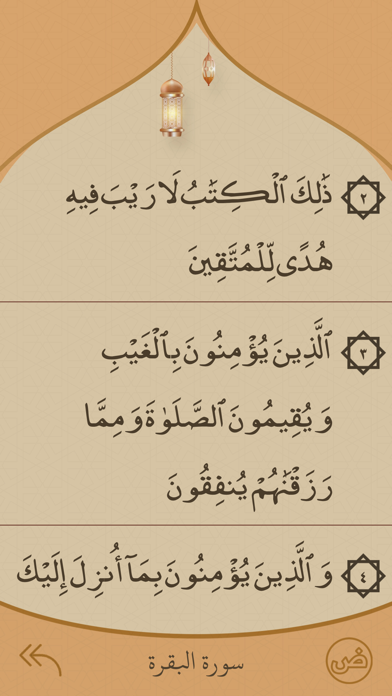 ٢ ذَٰلِكَ ٱلْكِتَٰبُ لَا رَيْبَ فِيهِ
هُدًى لِّلْمُتَّقِينَ
٣ ٱلَّذِينَ يُؤْمِنُونَ بِٱلْغَيْبِ
وَيُقِيمُونَ ٱلصَّلَوٰةَ وَمِمَّا
رَزَقْنَٰهُمْ يُنفِقُونَ
٤ وَٱلَّذِينَ يُؤْمِنُونَ بِمَآ أُنزِلَ إِلَيْكَ
سورة البقرة
ض